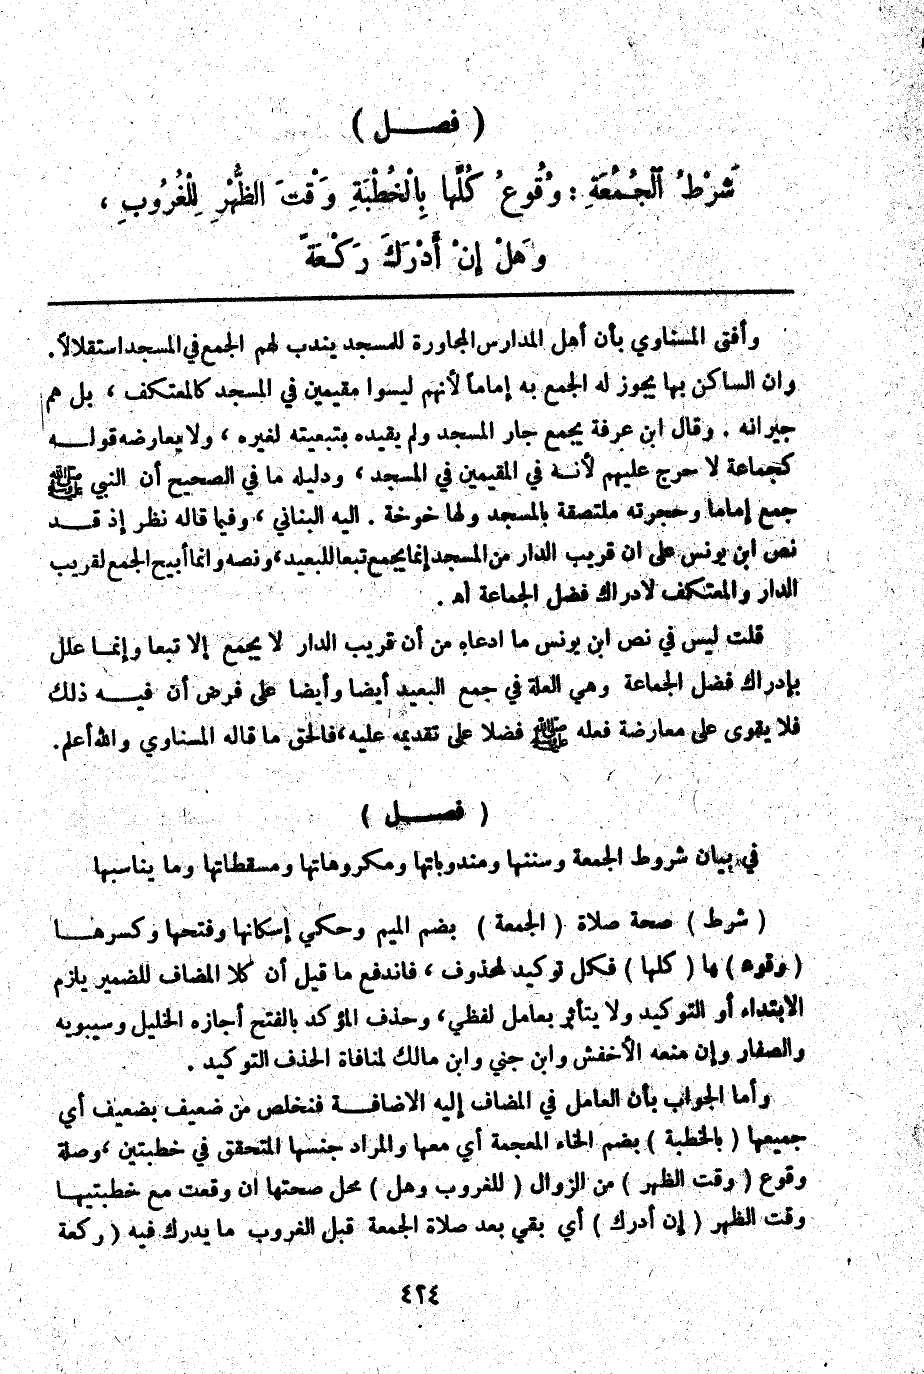 ( فصـــل )
شَرْطُ ٱلْجُمُعَةِ : وُقُوعُ كُلِّها بِالْخُطْبَةِ وَقْتَ الظُّهْرِ لِلْغُرُوبِ ،
وَهَلْ إِنْ أَدْرَكَ رَكْعَةً
وأفتى المسناوي بأن أهل المدارس المجاورة للمسجد يندب لهم الجمع في المسجد استقلالاً.
وان الساكن بها يجوز له الجمع به إماماً لأنهم ليسوا مقيمين في المسجد كالمعتكف ، بل هم
جيرانه . وقال ابن عرفة يجمع جار المسجد ولم يقيده بتبعيته لغيره ، ولا يعارضه قولـــه
كجماعة لا حرج عليهم لأنــه في المقيمين في المسجد ، ودليله ما في الصحيح أن النبي ﷺ
جمع إماما وحجرته ملتصقة بالمسجد ولها خوخة . اليه البناني ، وفيما قاله نظر إذ قـــد
نص ابن يونس على ان قريب الدار من المسجد إنما يجمع تبعا للبعيد ، ونصه وانما أبيح الجمع لقريب
الدار والمعتكف لادراك فضل الجماعة أه .
قلت ليس في نص ابن يونس ما ادعاه من أن قريب الدار لا يجمع إلا تبعا وإنمــا علل
بإدراك فضل الجماعة وهي العلة في جمع البعيد أيضا وأيضا على فرض أن فيـــه ذلك
فلا يقوى على معارضة فعله ﷺ فضلا على تقديمه عليه ، فالحق ما قاله المسناوي والله أعلم.
( فصـــل )
في بيان شروط الجمعة وسننها ومندوباتها ومكروهاتها ومسقطاتها وما يناسبها
( شرط ) صحة صلاة ( الجمعة ) بضم الميم وحكي إسكانها وفتحها وكسرهــا
( وقوع ) ها ( كلها ) فكل توكيد لمحذوف ، فاندفع ما قيل أن كلا المضاف للضمير يلزم
الابتداء أو التوكيد ولا يتأثر بعامل لفظي ، وحذف المؤكد بالفتح أجازه الخليل وسيبويه
والصفار وإن منعه الأخفش وابن جني وابن مالك لمنافاة الحذف التوكيد .
وأما الجواب بأن العامل في المضاف إليه الاضافـــة فتخلص من ضعيف بضعيف أي
جميعها ( بالخطبة ) بضم الخاء المعجمة أي معها والمراد جنسها المتحقق في خطبتين ، وصلة
وقوع ( وقت الظهر ) من الزوال ( للغروب وهل ) محل صحتها ان وقعت مع خطبتيهــا
وقت الظهر ( إن أدرك ) أي بقي بعد صلاة الجمعة قبل الغروب ما يدرك فيه ( ركعة
٤٢٤